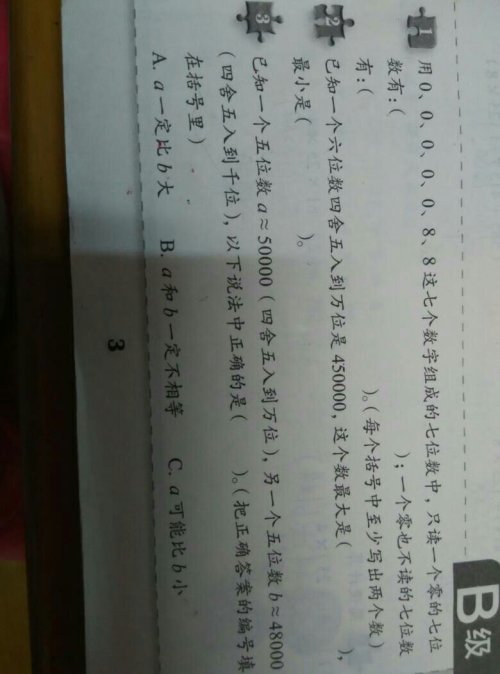 B级
1 用0、0、0、0、0、8、8这七个数字组成的七位数中，只读一个零的七位
数有：(                    )；一个零也不读的七位数
有：(                    )。(每个括号中至少写出两个数)
2 已知一个六位数四舍五入到万位是450000，这个数最大是(        )，
最小是(        )。
3 已知一个五位数a≈50000(四舍五入到万位)，另一个五位数b≈48000
(四舍五入到千位)，以下说法中正确的是(    )。(把正确答案的编号填
在括号里)
A. a一定比b大 B. a和b一定不相等 C. a可能比b小
3